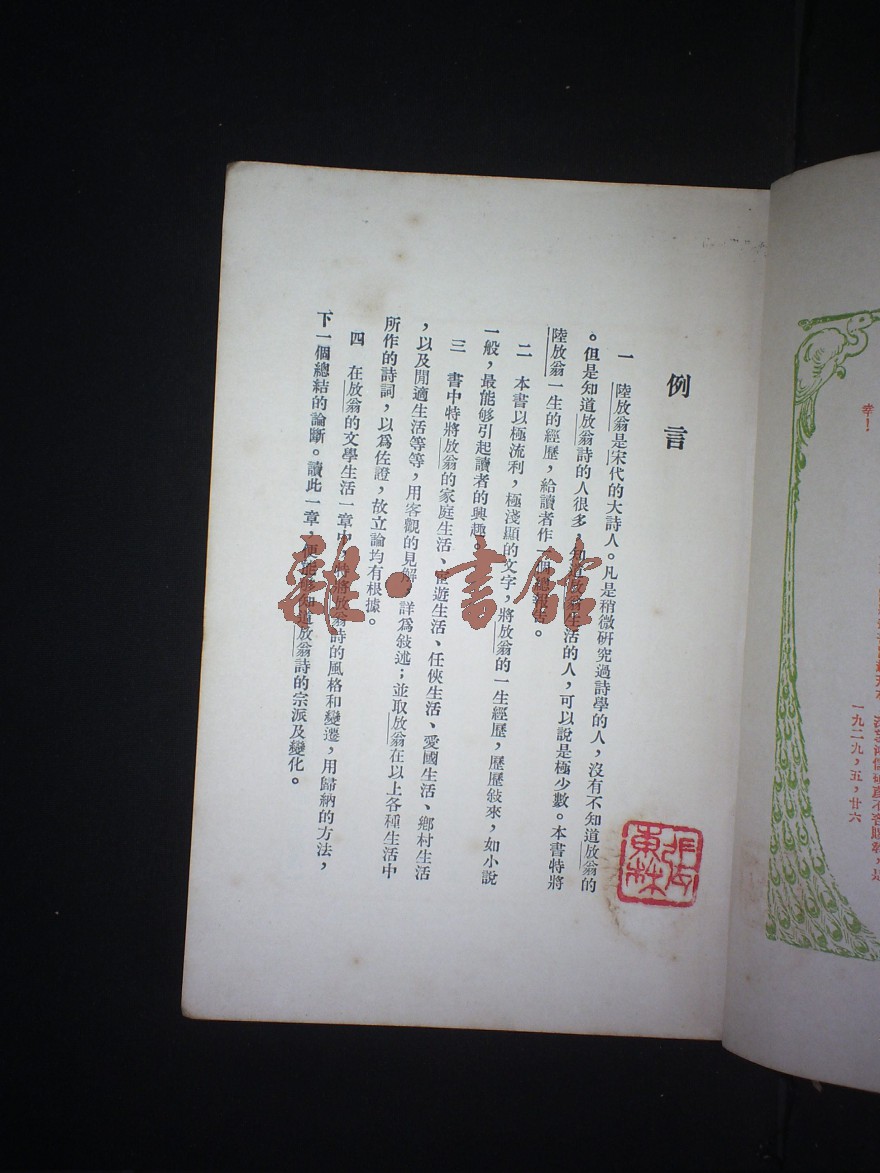 幸！
一九二九，五，廿六
例言
一　陸放翁是宋代的大詩人。凡是稍微研究過詩學的人，沒有不知道放翁的
。但是知道放翁詩的人很多，知道放翁生活的人，可以說是極少數。本書特將
陸放翁一生的經歷，給讀者作一個總報告。
二　本書以極流利，極淺顯的文字，將放翁的一生經歷，歷歷敍來，如小說
一般，最能够引起讀者的興趣。
三　書中特將放翁的家庭生活、宦遊生活、任俠生活、愛國生活、鄉村生活
，以及閒適生活等等，用客觀的見解，詳爲敍述；並取放翁在以上各種生活中
所作的詩詞，以爲佐證，故立論均有根據。
四　在放翁的文學生活一章中，特將放翁詩的風格和變遷，用歸納的方法，
下一個總結的論斷。讀此一章，便能够知道放翁詩的宗派及變化。
雜·書館